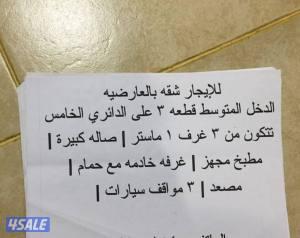 للإيجار شقه بالعارضيه
الدخل المتوسط قطعه ٣ على الدائري الخامس
تتكون من ٣ غرف ١ ماستر | صاله كبيرة |
مطبخ مجهز | غرفه خادمه مع حمام |
مصعد | ٣ مواقف سيارات |
4SALE